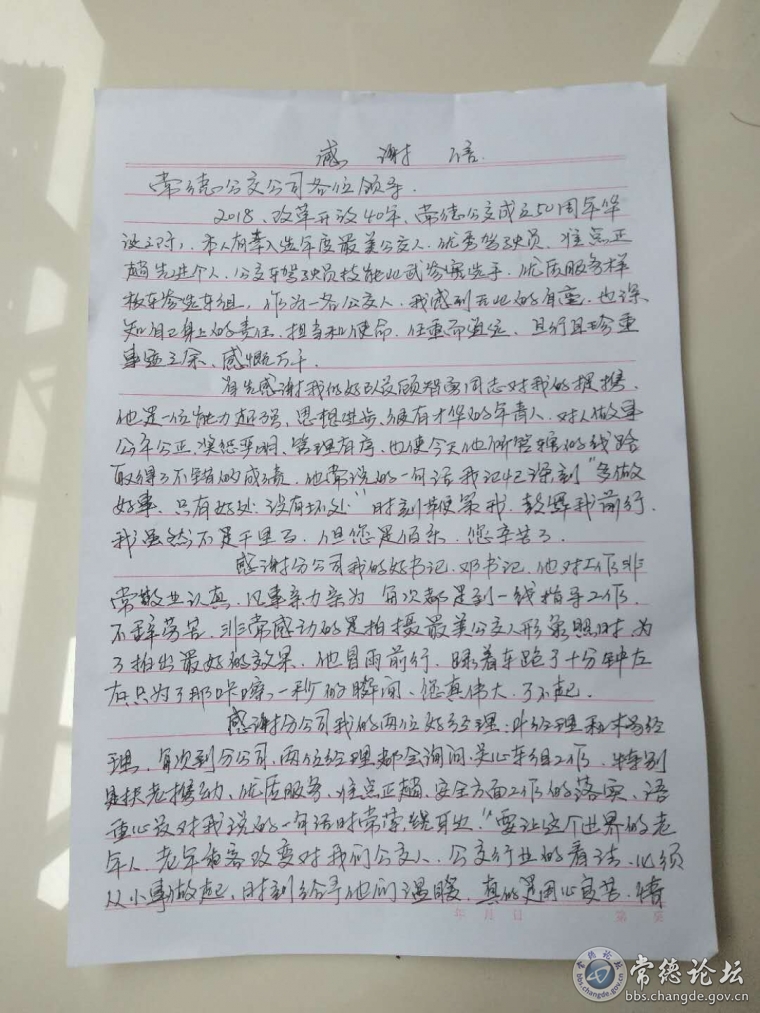 感 谢 信
常德公交公司各位领导.
2018、改革开放40年、常德公交成立50周年华
诞之时，本人有幸入选年度最美公交人. 优秀驾驶员. 准点正
趟先进个人. 公交车驾驶员技能比武参赛选手. 优质服务样
板车参选车组. 作为一名公交人. 我感到无比的自豪. 也深
知自己身上的责任. 担当和使命. 任重而道远、且行且珍重
事 之余、感慨万千.
首先感谢我的好队长顾智勇同志对我的提携.
他是一位能力超强, 思想进步. 很有才华的年青人. 对人做事
公平公正. 奖惩严明. 管理有序. 也使今天他所管辖的线路
取得了不错的成绩. 他常说的一句话我记忆深刻"多做
好事. 只有好处. 没有坏处"时刻鞭策我. 鼓舞我前行.
我虽然不是千里马. 但您是伯乐. 您辛苦了.
感谢分公司我的好书记. 邓书记. 他对工作非
常敬业认真. 凡事亲力亲为 每次都是到一线指导工作.
不辞劳苦. 非常感动的是拍摄最美公交人形象照时 为
了拍出最好的效果. 他冒雨前行. 跟着车跑了十分钟左
右只为了那咔嚓一秒的瞬间、您真伟大. 了不起.
感谢分公司我的两位好经理. 叶经理和 经
理. 每次到分公司. 两位经理都会询问. 关心车组工作. 特别
是扶老携幼、优质服务. 准点正趟. 安全方面工作的落实. 语
重心长对我说的一句话时常萦绕耳边. "要让这个世界的老
年人. 老年乘客改变对我们公交人. 公交行业的看法. 必须
从小事做起. 时刻给予他们温暖. 真的是用心良苦. 情
年 月 日 第 页
常德论坛
bbs.changde.gov.cn